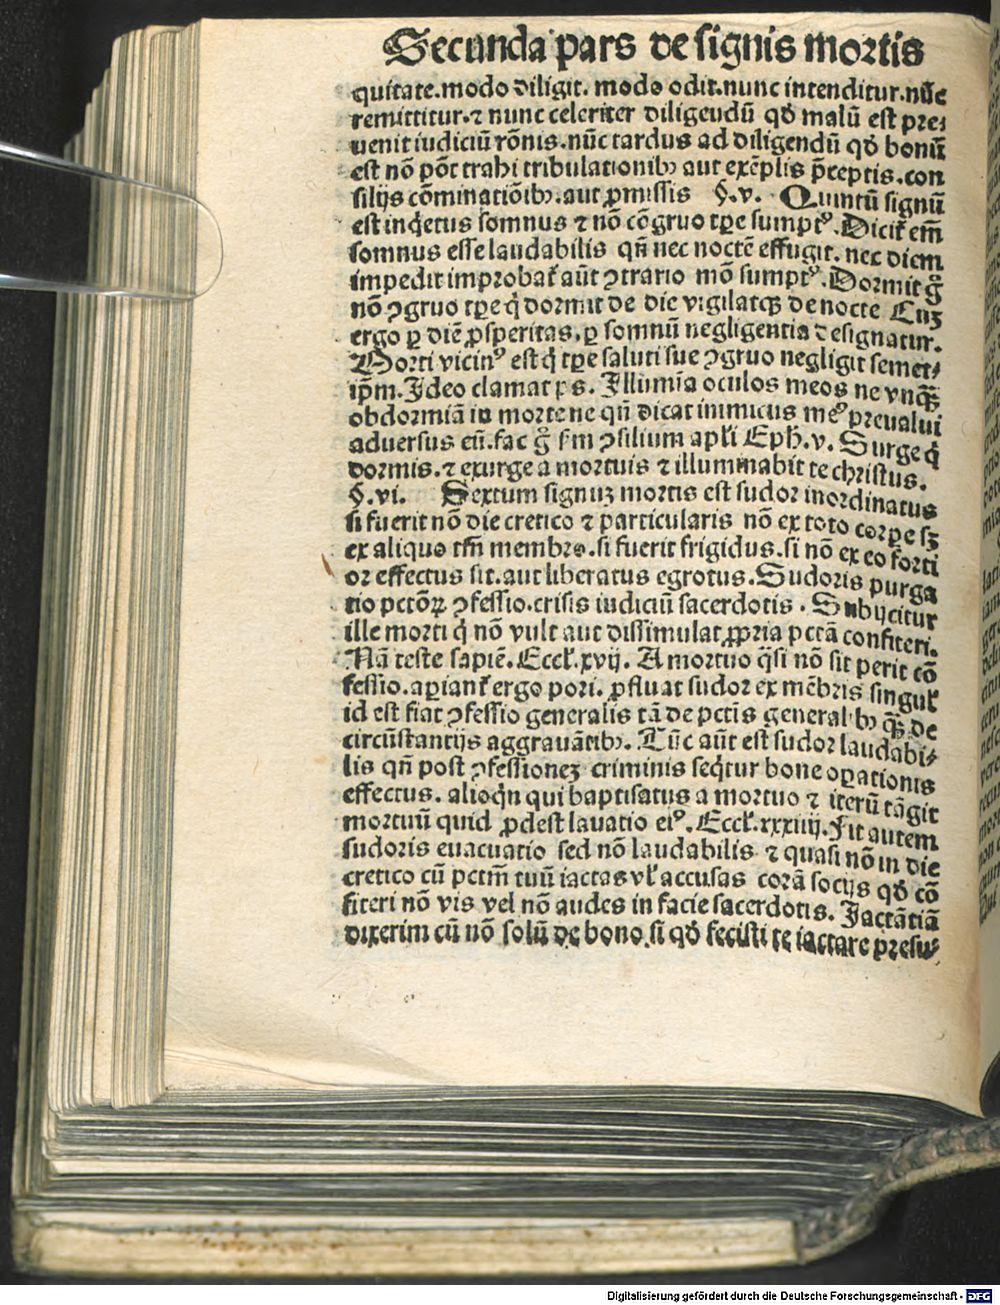 Secunda pars de signis mortis
quitate.modo diligit. modo odit.nunc intenditur.nūc
remittitur.⁊ nunc celeriter diligendū qđ malū est pre⸗
uenit iudiciū rōnis.nūc tardus ad diligendū qđ bonū
est nō pōt trahi tribulationibꝫ aut exēplis p̄ceptis.con
silijs cōminatiōibꝫ.aut ꝓmissis §.v. Quintū signū
est inq̇etus somnus ⁊ nō cōgruo tꝑe sumptꝰ.Dicit͛ em̄
somnus esse laudabilis qn̄ nec noctē effugit. nec diem
impedit improbat͛ aūt ꝯtrario mō sumptꝰ.Dormit g̊
nō ꝯgruo tꝑe q̇ dormit de die vigilatqꝫ de nocte Cuꝫ
ergo ꝑ diē ꝓsperitas.ꝑ somnū negligentia designatur.
Morti vicinꝰ est q̇ tꝑe saluti sue ꝯgruo negligit semet⸗
ip̄m.Ideo clamat ps. Illumīa oculos meos ne vnqꝫ̄
obdormiā in morte ne qn̄ dicat inimicus meꝰ preualui
aduersus eū.fac g̊ s̄m ꝯsilium apl̓i Eph.v. Surge q̇
dormis.⁊ exurge a mortuis ⁊ illuminabit te christus.
§.vi. Sextum signuꝫ mortis est sudor inordinatus
si fuerit nō die cretico ⁊ particularis nō ex toto corpe sꝫ
ex aliquo tm̄ membro.si fuerit frigidus.si nō ex eo forti
or effectus sit.aut liberatus egrotus.Sudoris purga
tio pctōꝝ ꝯfessio.crisis iudiciū sacerdotis. Subijcitur
ille morti q̇ nō vult aut dissimulat ꝓpria pctā confiteri.
Nā teste sapiē.Eccl̓.xvij. A mortuo q̇si nō sit perit cō
fessio.aꝑiant͛ ergo pori. ꝓfluat sudor ex mēbris singul̓
id est fiat ꝯfessio generalis tā de pctīs generalibꝫ qꝫ̄ de
circūstantijs aggrauātibꝫ. Tūc aūt est sudor laudabi⸗
lis qn̄ post ꝯfessioneꝫ criminis seq̇tur bone oꝑationis
effectus. alioq̇n qui baptisatus a mortuo ⁊ iterū tāgit
mortuū quid ꝓdest lauatio eiꝰ. Eccl̓.xxxiiij.Fit autem
sudoris euacuatio sed nō laudabilis ⁊ quasi nō in die
cretico cū pctm̄ tuū iactas vl̓ accusas corā socijs qđ cō
fiteri nō vis vel nō audes in facie sacerdotis. Jactātiā
dixerim cū nō solū de bono.si qđ fecisti te iactare presu⸗
Digitalisierung gefördert durch die Deutsche Forschungsgemeinschaft - DFG